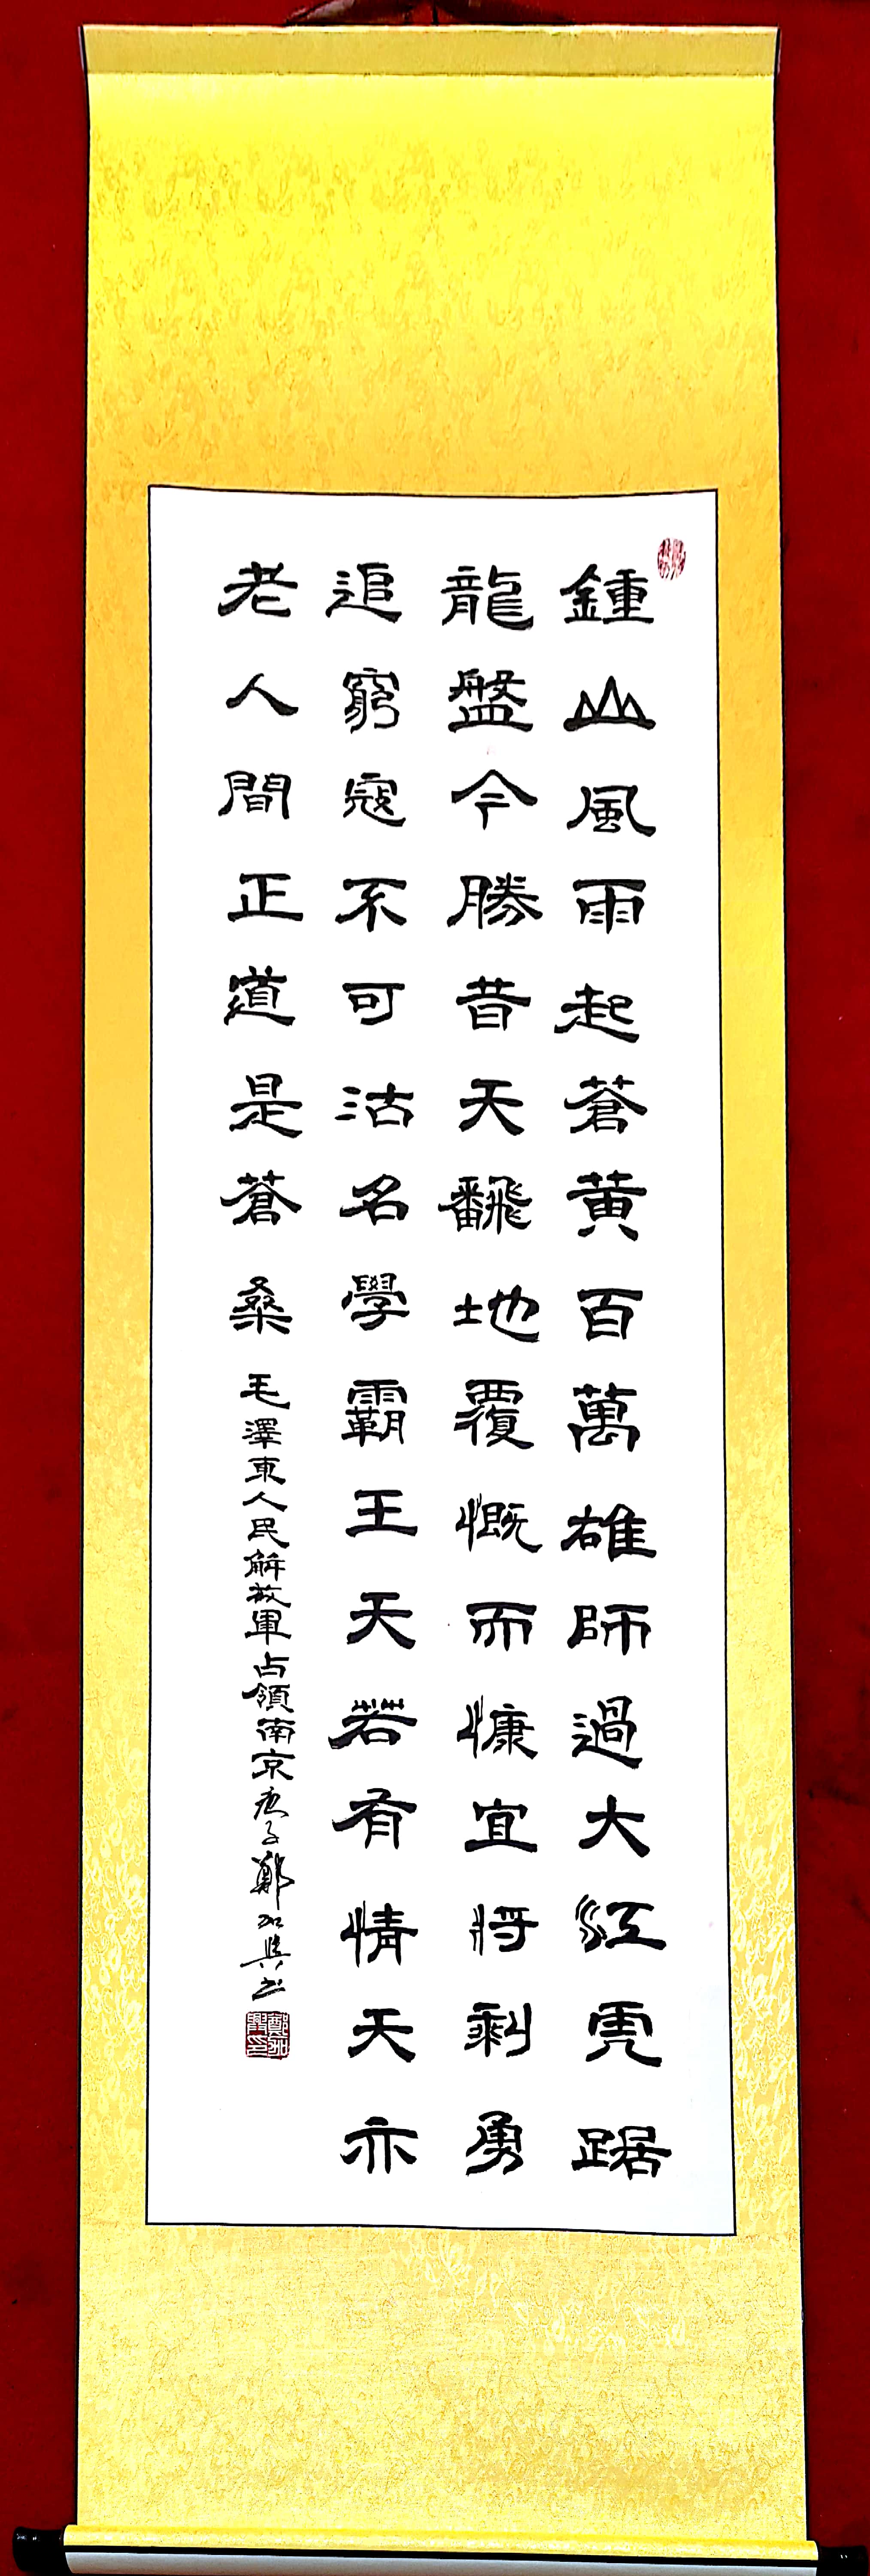 鍾山風雨起蒼黄百萬雄師過大江虎踞
龍盤今勝昔天飜地覆慨而慷宜將剩勇
追窮寇不可沽名學霸王天若有情天亦
老人間正道是蒼桑
毛澤東人民解放軍占領南京庚子鄭加興书
鄭加興印